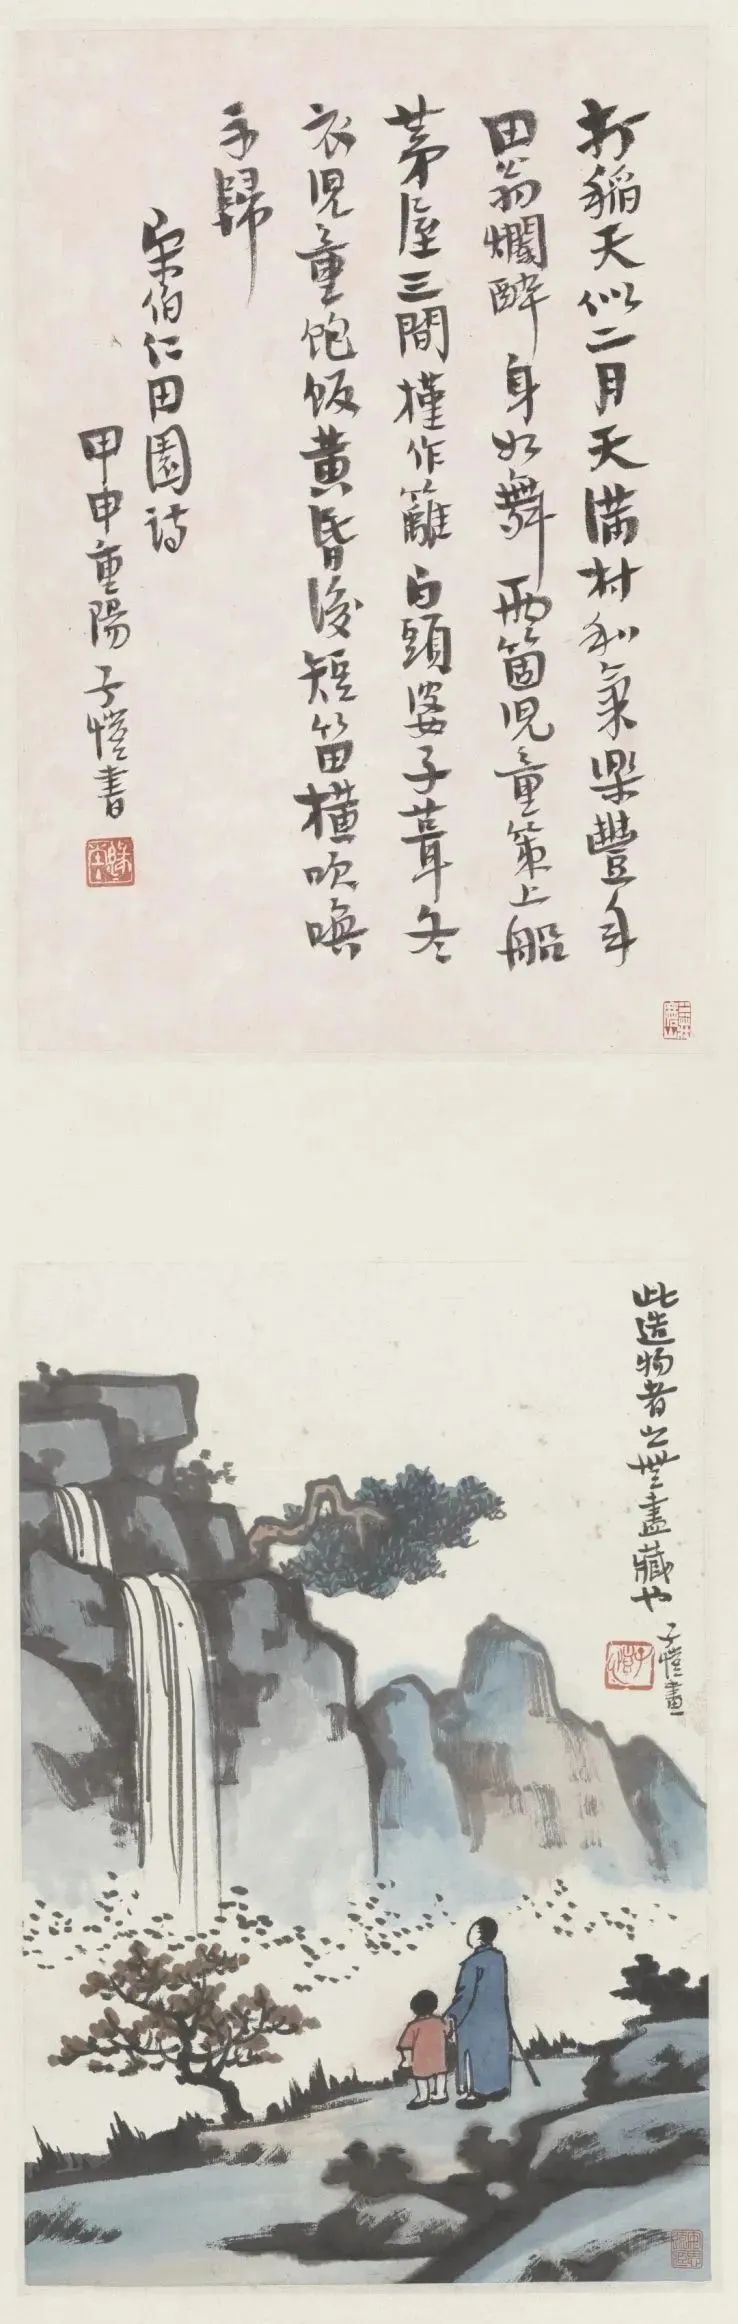 打稻天似二月天滿村和氣樂豐年
田翁爛醉身如舞兩箇兒童策上船
茅屋三間槿作籬白頭婆子葺冬
衣兒童飽飯黃昏後短笛橫吹喚
予歸
宋伯仁田園詩
甲申重陽子愷書
此造物者之無盡藏也
子愷畫